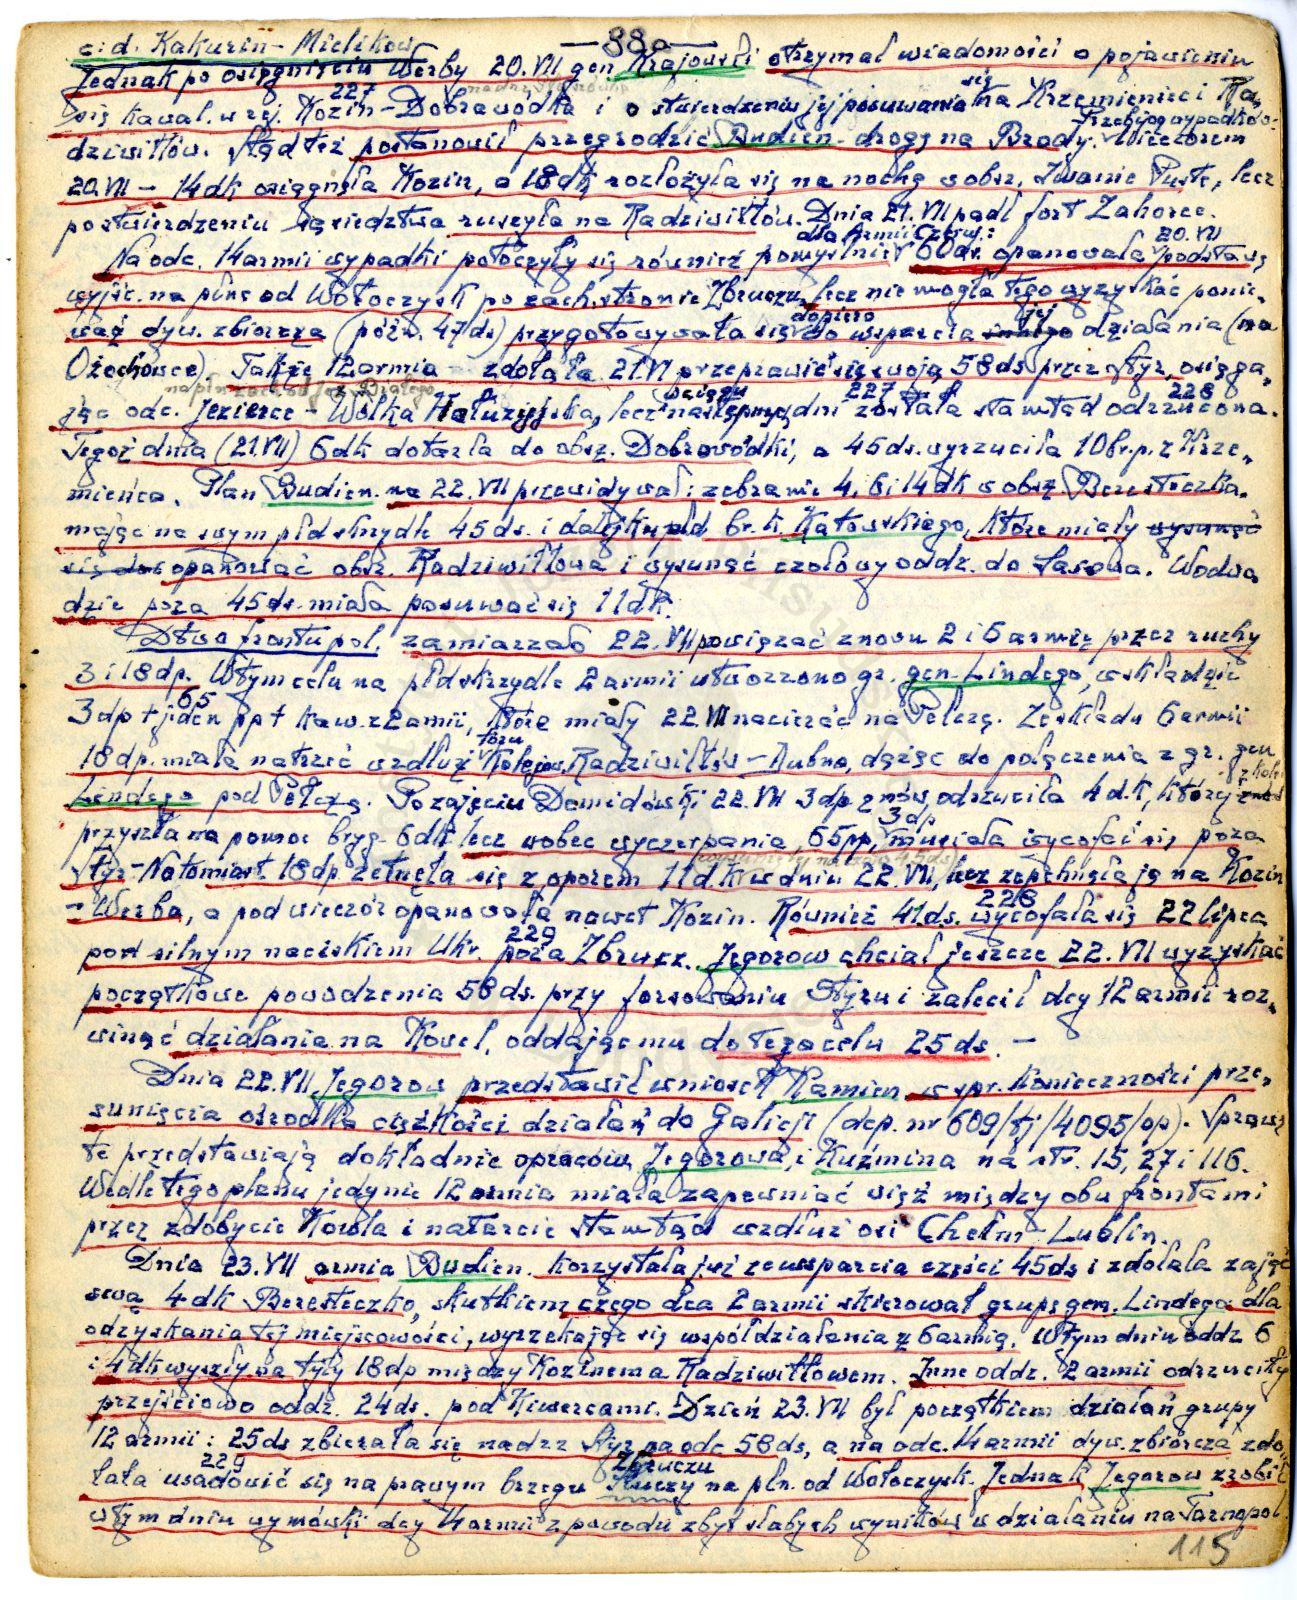 c.d. Kakurin-Mielikow
— 88a —
Jednak po osiągnięciu Werby 20.VII gen Krajowski otrzymał wiadomości o pojawieniu
się kawal. w rej. Kozin - Dobrawodka i o stwierdzeniu jej posuwania się na Krzemieniec i Ra-
227
dziwiłłów. Stąd też postanowił przegrodzić Budien. drogę na Brody. Wieczorem
20.VII - 14dk osiągnęła Kozin, a 18dk rozłożyła się na nochę w obsz. Iwanie Puste, lecz
po stwierdzeniu sąsiedztwa ruszyła na Radziwiłłów. Dnia 21.VII padł fort Zahorce.
Na odc. 14 armii wypadki potoczyły się również pomyślnie dla Armii Czerw.: 60ds. opanowała 20.VII podstawę
wyjśc. na płnc od Wołoczysk po zach. stronie Zbruczu, lecz nie mogła tego wyzyskać ponie-
waż dyw. zbiorcza (póź. 47ds) przygotowywała się dopiero do wsparcia jej działania (na
Ożochowce). Także 12 armia - zdołała 21.VI przeprawić się swoją 58ds przez Styr, osiąga-
jąc odc. Jezierce - Wolka, lecz w ciągu dni została stamtąd odrzucona.
227 228
Tegoż dnia (21.VII) 6dk dotarła do obsz. Dobrowódki, a 45ds. wyrzuciła 10br.p. z Krze-
mieńca. Plan Budien. na 22.VII przewidywał: zebranie 4, 6 i 14dk w obsz. Beresteczka.
mając na swym płd skrzydle 45ds. i dalej ku płd br. k. Kątowskiego, które miały wysunąć
się do opanować obsz. Radziwiłłowa i wysunąć czołowy oddz. do Łasowa. W odwo
dzie poza 45ds. miała posuwać się 11dk.
Dtwo frontu pol. zamierzało 22.VII powiązać znowu 2 i 6 armię przez ruchy
3 i 18dp. W tym celu na płd skrzydle 2 armii utworzono gr. gen. Lindego, w składzie
3dp + jeden 65 pp + kaw. z 2 armii, które miały 22 VII nacierać na Pełczę. Ze składu 6 armii
18dp. miała natrzeć wzdłuż toru Kolejow. Radziwiłłów - Dubno, dążąc do połączenia z gr. gen
Lindego pod Pełczą. Po zajęciu Demidówki 22.VII 3dp znów, odrzuciła 4dk, której z kolei
przyszła na pomoc bryg. 6dk lecz wobec wyczerpania, 65pp, 3dp musiała wycofać się poza
Styr. Natomiast 18dp. zetknęła się z oporem 11dk w dniu 22.VII, lecz zepchnęła ją na Kozin
- Werba, a pod wieczór opanowała nawet Kozin. Również 41ds. wycofała się 22 lipca
228
pod silnym naciskiem Ukr. poza Zbrucz. Jegorow chciał jeszcze 22.VII wyzyskać
229
początkowe powodzenia 58ds. przy forsowaniu Styru i zalecił dcy 12 armii roz-
winąć działania na Kowel, oddając mu do tego celu 25ds. —
Dnia 22.VII Jegorow przedstawił wniosek Kamien. w spr. Konieczności prze-
sunięcia ośrodka ciężkości działań do Galicji (dep. nr 609/tj/4095/op). Sprawę
tę przedstawiają dokładnie opracow. Jegorowa, i Kuźmina na str. 15, 27 i 116.
Wedle tego planu jedynie 12 armia miała zapewniać więź między obu frontami
przez zdobycie Kowla i natarcie stamtąd wzdłuż osi Chełm - Lublin.
Dnia 23.VII armia Budien. Korzystała już ze wsparcia części 45ds i zdołała zająć
swą 4dk Beresteczko, skutkiem czego dca 2 armii skierował grupę gen. Lindego dla
odzyskania tej miejscowości, wyrzekając się współdziałania z 6 armią. W tym dniu oddz 6
i 4dk wyszły na tyły 18dp między Kozinem a Radziwiłłowem. Inne oddz. 2 armii odrzuciły
przejściowo oddz. 24ds. pod Kiwercami. Dzień 23.VII był początkiem działań grupy
12 armii: 25ds zbierała się nad rz Styr na odc 58ds, a na odc. 14 armii dyw. zbiorcza zdo-
łała usadowić się na prawym brzegu Zbruczu na płn. od Wołoczysk. Jednak Jegorow zrobił
229
w tym dniu wymówki dcy 14 armii z powodu zbyt słabych wyników w działaniu na Tarnopol.
115